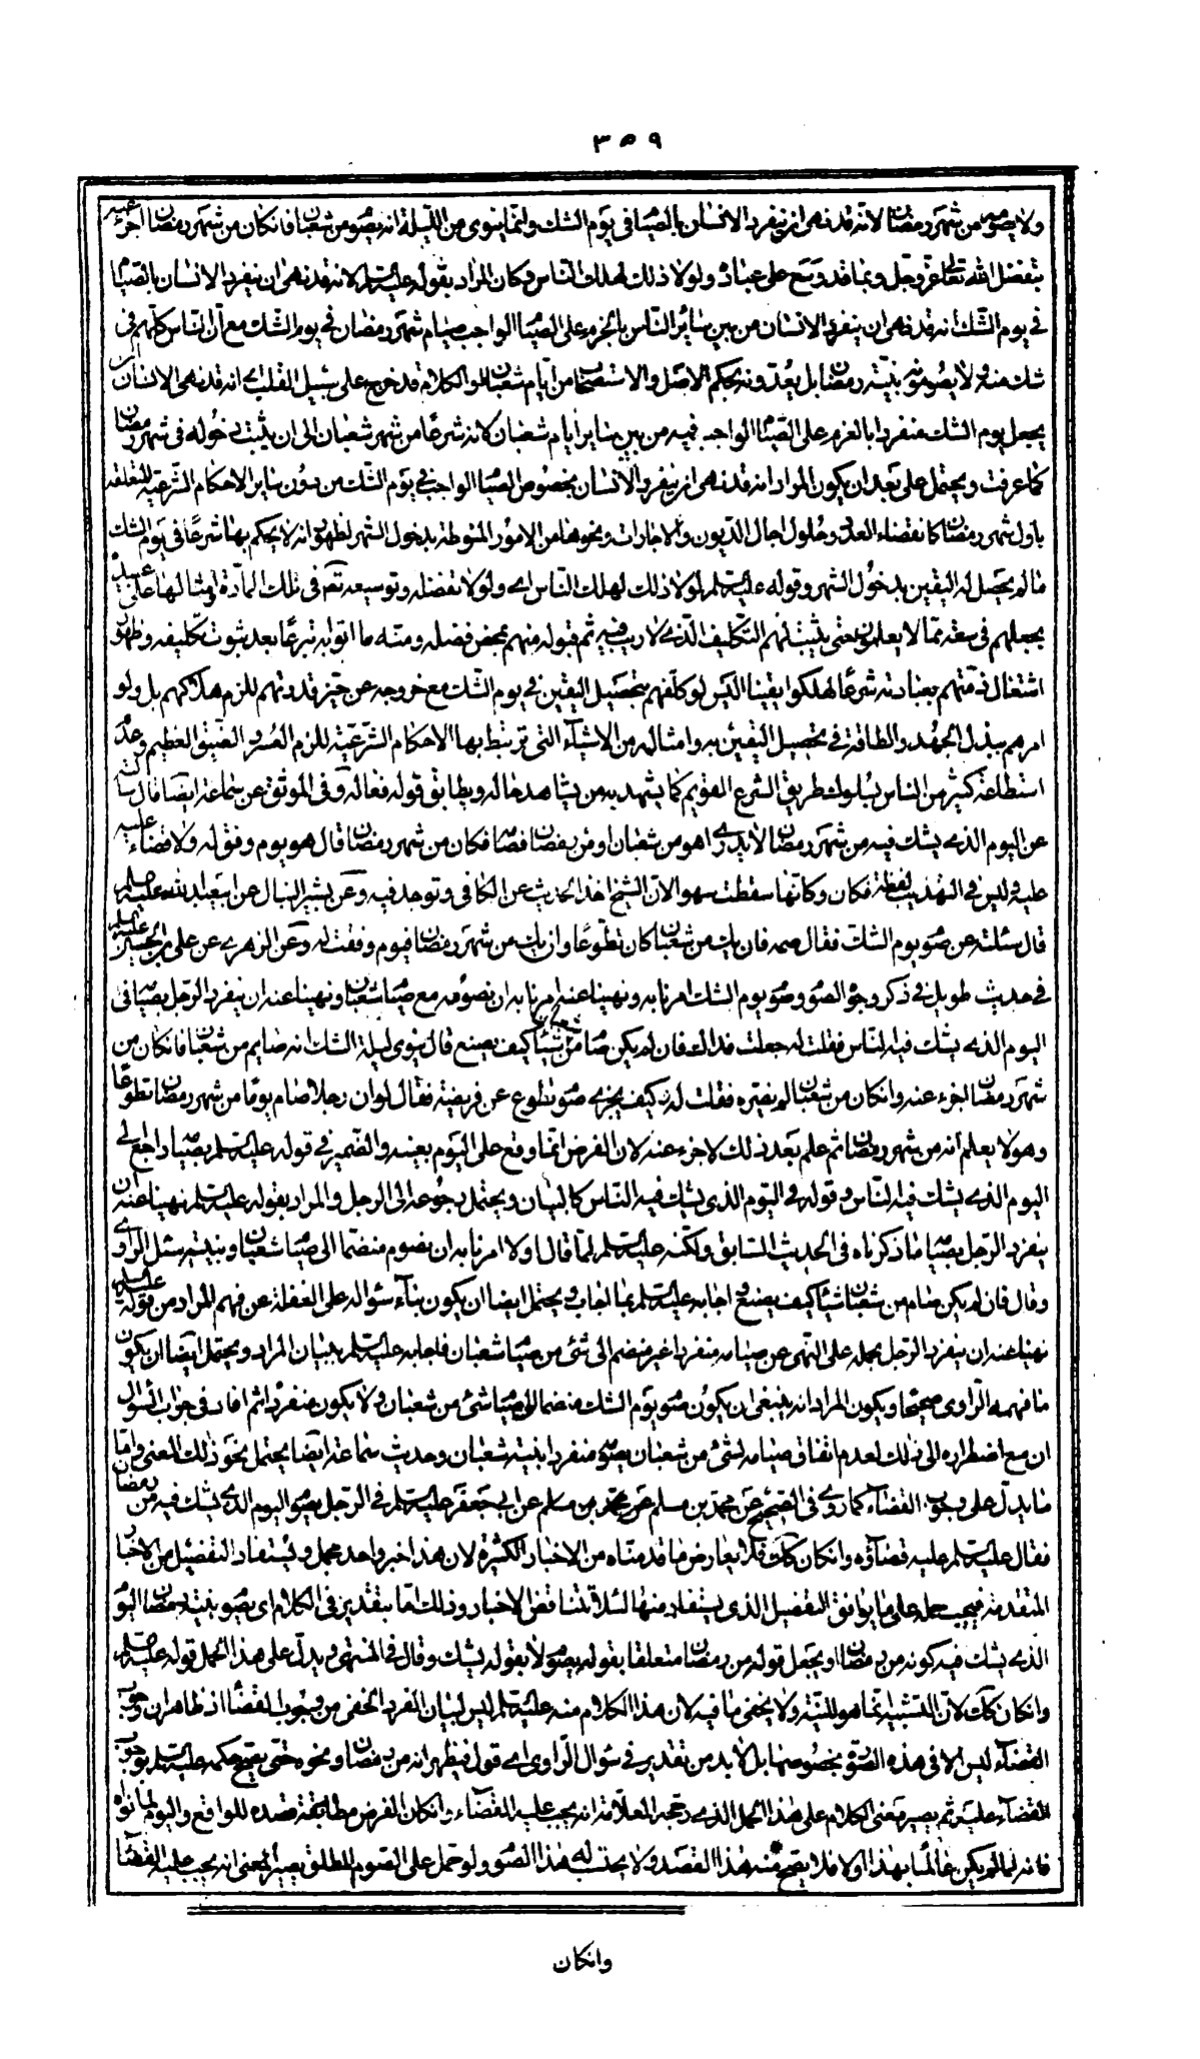 ٣٥٩
ولا يصومه من شهر رمضان لانه قد نهى ان ينفرد الانسان بالصيام في يوم الشك وانما ينوى من الليلة انه يصوم من شعبان فان كان من شهر رمضان اجزء عنه
بتفضل الله تعالى عز وجل وبما قد وسع على عباده ولولا ذلك لهلك الناس وكان المراد بقوله عليه السلم لانه قد نهى ان ينفرد الانسان بالصيام
في يوم الشك انه قد نهى ان ينفرد الانسان من بين ساير الناس بالجزم على الصيام الواجب صيام شهر رمضان في يوم الشك مع ان الناس كلهم في
شك منه ولا يصومونه بنية رمضان بل يعدونه بحكم الاصل والاستصحاب من ايام شعبان او الكلام قد خرج على سبيل القلب اى انه قد نهى الانسان ان
يجعل يوم الشك منفردا بالعزم على الصيام الواجب فيه من بين ساير ايام شعبان كانه شرعا من شهر شعبان الى ان يثبت دخوله في شهر رمضان
كما عرفت ويحتمل على بعد ان يكون المراد انه قد نهى ان ينفرد الانسان بخصوص الصيام الواجب في يوم الشك من دون ساير الاحكام الشرعية المتعلقة
باول شهر رمضان كانقضاء العدة وحلول اجال الديون والاجارات ونحوها من الامور المنوطة بدخول الشهر لظهور انه لا يحكم بها شرعا في يوم الشك
ما لم يحصل له اليقين بدخول الشهر وقوله عليه السلم لولا ذلك لهلك الناس اى ولولا تفضله وتوسيعه تعم في تلك المادة وامثالها على عبيده
بجعلهم في سعة مما لا يعلمون حتى يثبت لهم التكليف الذى لا ريب فيه ثم قبوله منهم بمحض فضله ومنه ما اتوا به تبرعا بعد ثبوت تكليفه وظهور
اشتغال ذمتهم بعبادته شرعا لهلكوا يقينا اليس لو كلفهم بتحصيل اليقين في يوم الشك مع خروجه عن حيز قدرتهم للزم هلاكهم بل ولو
امرهم ببذل الجهد والطاقة في تحصيل اليقين به وامثاله من الاشياء التى ترتبط بها الاحكام الشرعية للزم العسر والضيق العظيم وعدم
استطاعة كثير من الناس لسلوك طريق الشرع القويم كما يشهد به من يشاهد حاله ويطابق قوله فعاله وفى الموثق عن سماعة ايضا قال سالته
عن اليوم الذى يشك فيه من شهر رمضان لا يدرى اهو من شعبان او من رمضان فصامه فكان من شهر رمضان قال هو يوم وفق له ولا قضاء عليه
عليه وليس في التهذيب لفظة فكان وكانها سقطت سهوا لان الشيخ اخذ الحديث عن الكافى وتوجد فيه وعن بشير النبال عن ابى عبد الله عليه السلم
قال سئلته عن صوم يوم الشك فقال صمه فان يك من شعبان كان تطوعا وان يك من شهر رمضان فيوم وفقت له وعن الزهرى عن على بن الحسين عليه السلم
في حديث طويل في ذكر وجوه الصوم وصوم يوم الشك امرنا به ونهينا عنه امرنا به ان نصومه مع صيام شعبان ونهينا عنه ان ينفرد الرجل بصيامه في
اليوم الذى يشك فيه الناس فقلت له جعلت فداك فان لم يكن صام من شعبان شيئا كيف يصنع قال ينوى ليلة الشك انه صايم من شعبان فان كان من
شهر رمضان اجزء عنه وان كان من شعبان لم يضره فقلت له وكيف يجزى صوم تطوع عن فريضة فقال لو ان رجلا صام يوما من شهر رمضان تطوعا
وهو لا يعلم انه من شهر رمضان ثم علم بعد ذلك لاجزء عنه لان الفرض انما وقع على اليوم بعينه والضمير في قوله عليه السلم بصيامه راجع الى
اليوم الذى يشك فيه الناس وقوله في اليوم الذى يشك فيه الناس كالبيان ويحتمل رجوعه الى الرجل والمراد بقوله عليه السلم نهينا عنه ان
ينفرد الرجل بصيامه ما ذكرناه في الحديث السابق ولكنه عليه السلم لما قال اولا امرنا به ان نصوم منضما الى صيام شعبان وبنيته سئل الراوى
وقال فان لم يكن صام من شعبان شيئا كيف يصنع واجابه عليه السلم بما اجاب ويحتمل ايضا ان يكون بناء سؤاله على الغفلة عن فهم المراد من قوله عليه السلم
نهينا عنه ان ينفرد الرجل بحمله على النهى عن صيامه منفردا غير منضم الى شئ من صيام شعبان فاجابه عليه السلم ببيان المراد ويحتمل ايضا ان يكون
ما فهمه الراوى صحيحا ويكون المراد انه ينبغى ان يكون صوم يوم الشك منضما الى صيام شئ من شعبان ولا يكون منفردا ثم افاد في جواب السؤال
ان مع اضطراره الى ذلك لعدم اتفاق صيامه لشئ من شعبان يصومه منفردا بنية شعبان وحديث سماعة ايضا يحتمل نحو ذلك المعنى واما
ما يدل على وجوب القضاء كما روى في الصحيح عن محمد بن مسلم عن ابى جعفر عليه السلم في الرجل يصوم اليوم الذى يشك فيه من رمضان
فقال عليه السلم عليه قضاؤه وان كان كك فلا يعارض ما قدمناه من الاخبار الكثيرة لان هذا خبر واحد مجمل ويستفاد التفصيل من الاخبار
المتقدمة فيجب حمله على ما يوافق التفصيل الذى يستفاد منها لئلا تتناقض الاخبار وذلك اما بتقدير في الكلام اى يصوم بنية رمضان اليوم
الذى يشك فيه كونه من رمضان او بجعل قوله من رمضان متعلقا بقوله يصوم لا بقوله يشك وقال في المنتهى ويدل على هذا الحمل قوله عليه السلم
وان كان كك لان التشبيه انما هو للنية ولا يخفى ما فيه لان هذا الكلام منه عليه السلم ليس لبيان الفرد الخفى من وجوب القضاء اذ ظاهر ان وجوب
القضاء ليس الا في هذه الصورة بخصوصها بل لا بد من تقدير في سؤال الراوى اى قوله فيظهر انه من رمضان ونحوه حتى يصح حكمه عليه السلم بوجوب
القضاء عليه ثم يصير معنى الكلام على هذا الحمل الذى رجحه العلامة انه يجب عليه القضاء وان كان الفرض مطابقة قصده للواقع واليوم لما نواه
فانه لما لم يكن عالما بهذا اولا فلا يصح منه هذا القصد ولا يحتسب له هذا الصوم ولو حمل على الصوم المطلق يصير المعنى انه يجب عليه القضاء
وانكان